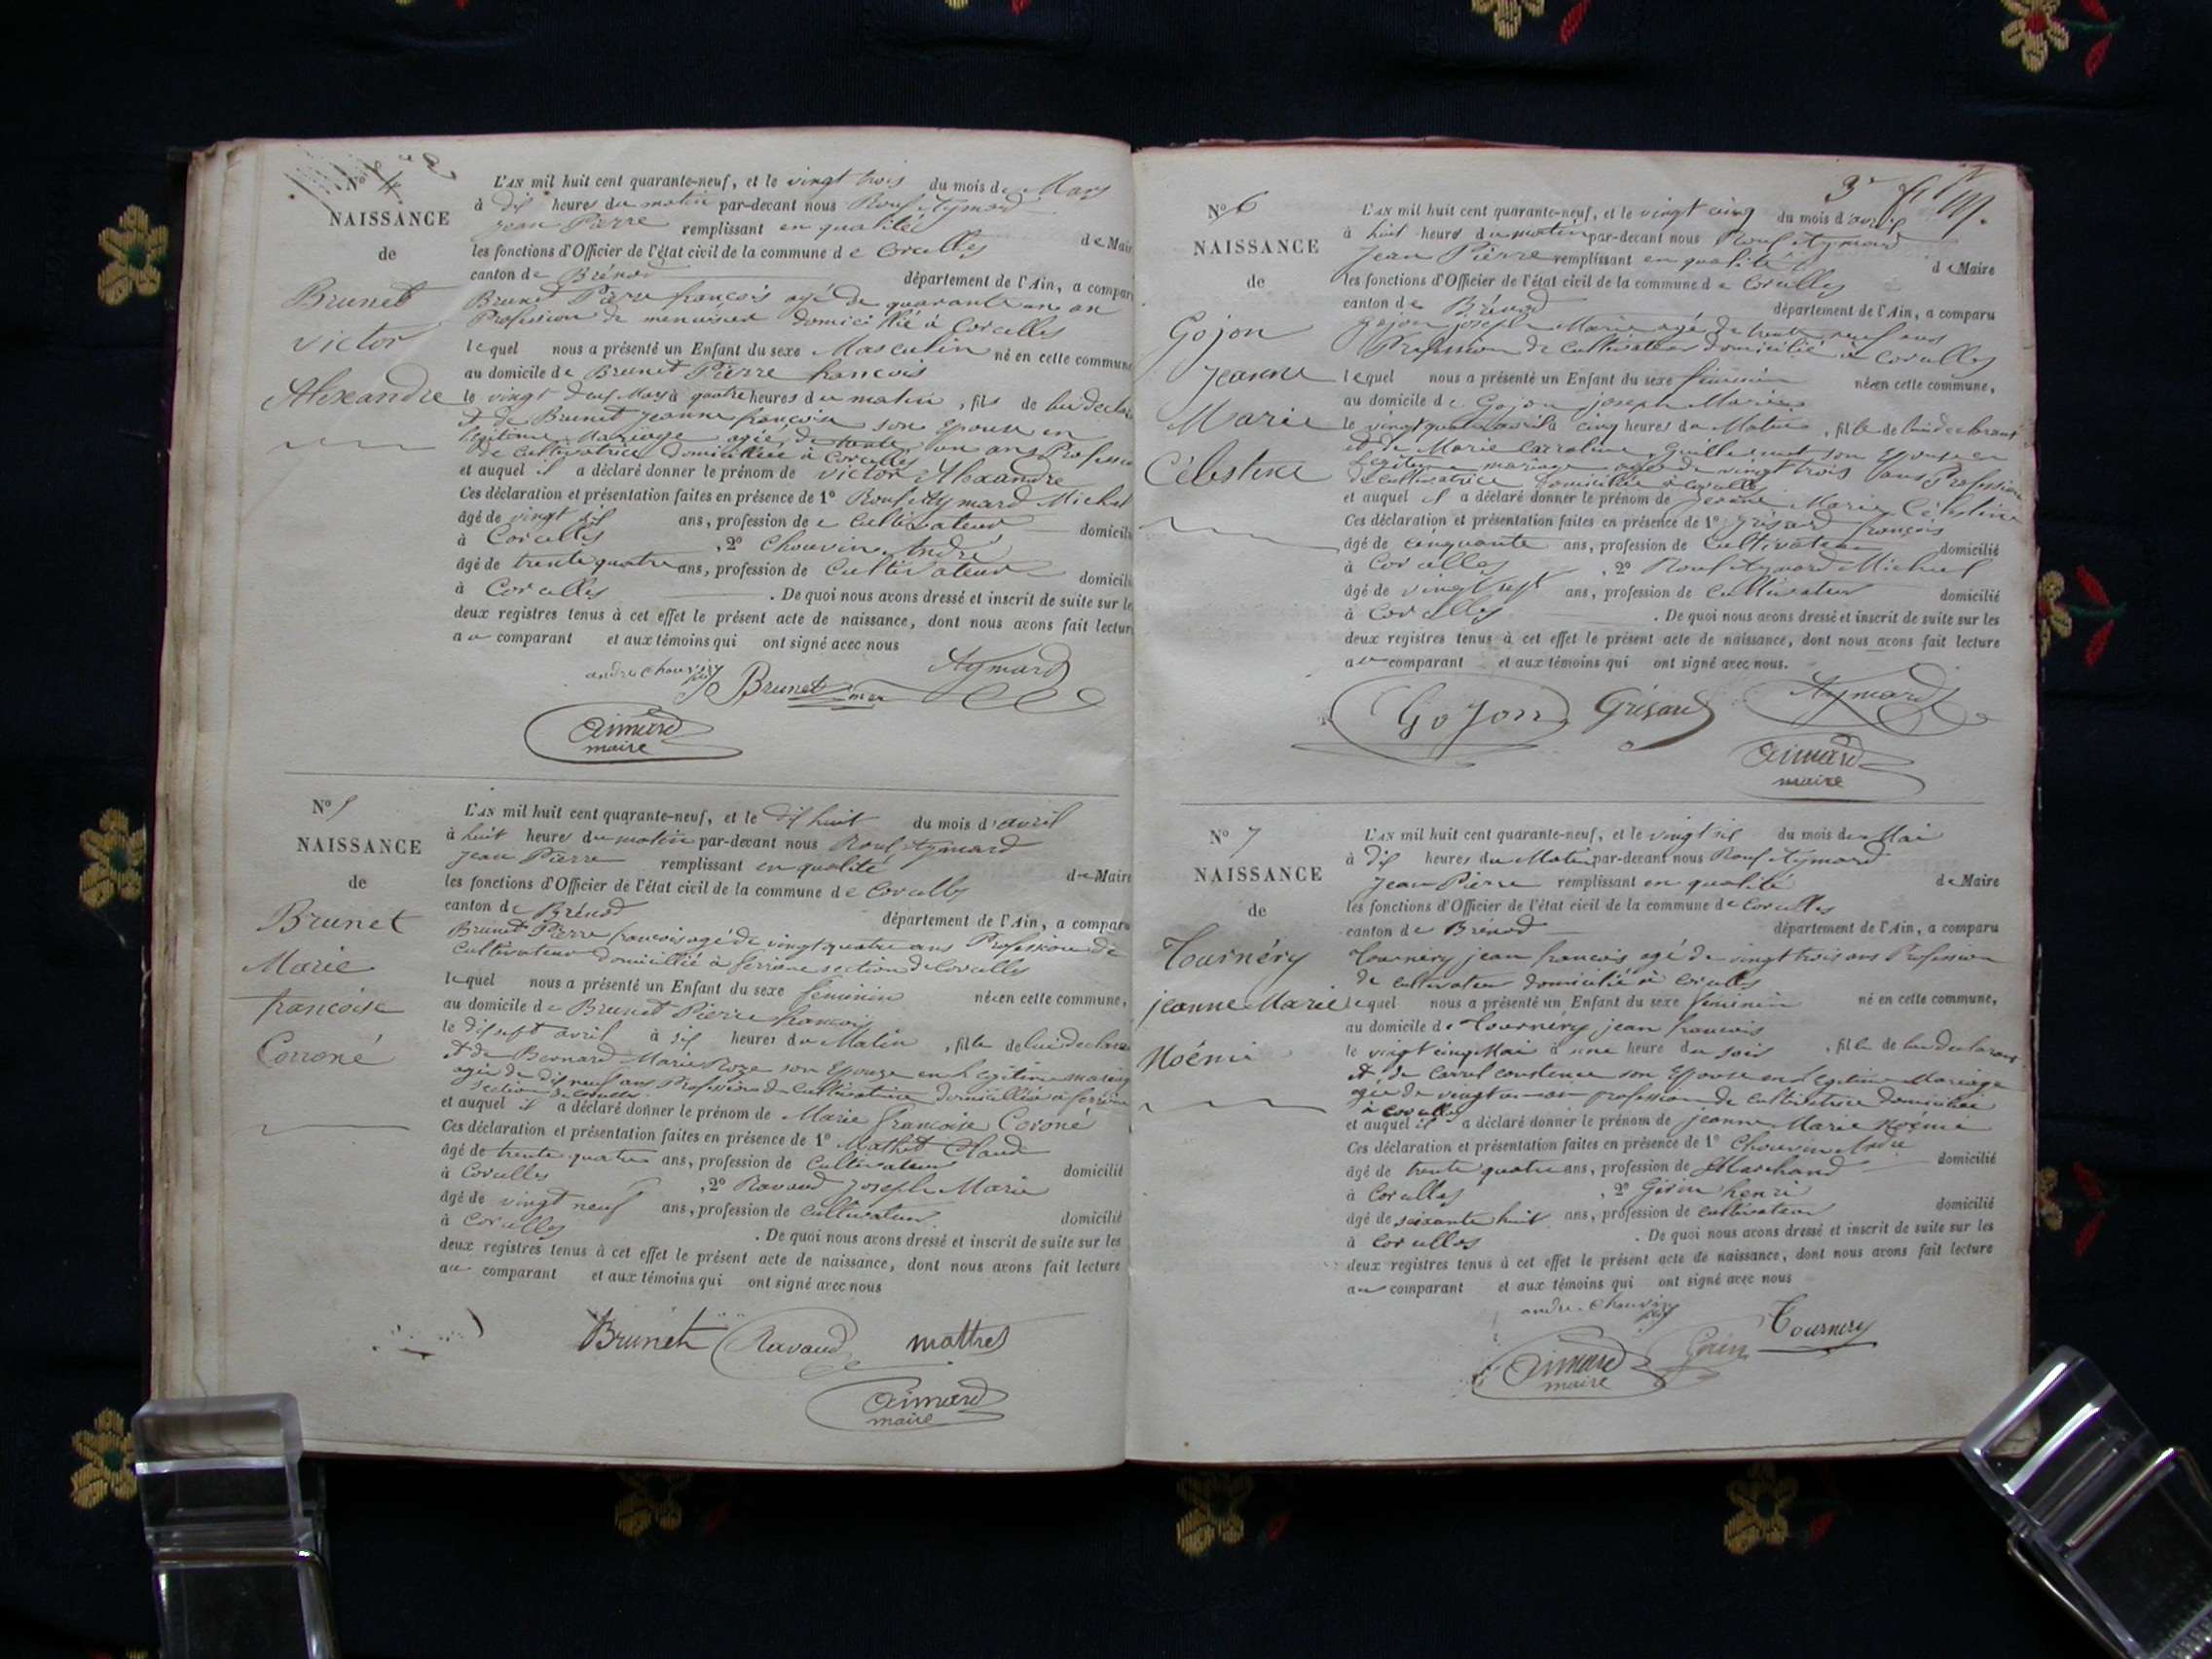 N° 4
NAISSANCE
de
Brunet
victor
Alexandre
L'AN mil huit cent quarante-neuf, et le vingt trois du mois de Mars
à dix heures du matin par-devant nous Rouf Aymard
Jean Pierre remplissant en qualité de Maire
les fonctions d'Officier de l'état civil de la commune de Corcelles
canton de Brénod département de l'Ain, a compar
Brunet Pierre françois agé de quarante un an
Profession de menuisier domicillié à Corcelles
lequel nous a présenté un Enfant du sexe Masculin né en cette commune
au domicile de Brunet Pierre francois
le vingt deux Mars à quatre heures du matin, fils de lui decla
et de Brunet jeanne françoise son Epouse en
legitime Mariage agée de trente un ans Professi
de cultivatrice domicilliée à Corcelles
et auquel il a déclaré donner le prénom de victor Alexandre
Ces déclaration et présentation faites en présence de 1° Rouf Aymard Michel
âgé de vingt six ans, profession de Cultivateur domicili
à Corcelles, 2° Chouvin André
âgé de trente quatre ans, profession de Cultivateur domicili
à Corcelles. De quoi nous avons dressé et inscrit de suite sur le
deux registres tenus à cet effet le présent acte de naissance, dont nous avons fait lectur
au comparant et aux témoins qui ont signé avec nous
andre chouvin Brunet Aymard
aimard
maire
N° 5
NAISSANCE
de
Brunet
Marie
francoise
Corroné
L'AN mil huit cent quarante-neuf, et le dix huit du mois d'avril
à huit heures du matin par-devant nous Rouf Aymard
Jean Pierre remplissant en qualité de Maire
les fonctions d'Officier de l'état civil de la commune de Corcelles
canton de Brénod département de l'Ain, a comparu
Brunet Pierre francois agé de vingt quatre ans Profession de
Cultivateur domicillié à ferriere section de Corcelles
lequel nous a présenté un Enfant du sexe feminin née en cette commune,
au domicile de Brunet Pierre francois
le dix sept avril à six heures du Matin, fille de lui declara
et de Bernard Marie Roze son Epouze en Legitime mariag
agée de dix neuf ans Profession de Cultivatrice domicilliée à ferriere
section de Corcelles
et auquel il a déclaré donner le prénom de Marie francoise Coroné
Ces déclaration et présentation faites en présence de 1° Mathet Claude
âgé de trente quatre ans, profession de Cultivateur domicilié
à Corcelles, 2° Ravaud Joseph Marie
âgé de vingt neuf ans, profession de Cultivateur domicilié
à Corcelles. De quoi nous avons dressé et inscrit de suite sur les
deux registres tenus à cet effet le présent acte de naissance, dont nous avons fait lecture
au comparant et aux témoins qui ont signé avec nous
Brunet Ravaud mattret
aimard
maire
N° 6
NAISSANCE
de
Gojon
Jeanne
Marie
Célestine
L'AN mil huit cent quarante-neuf, et le vingt cinq du mois d'avril
à huit heures du matin par-devant nous Rouf Aymard
Jean Pierre remplissant en qualité de Maire
les fonctions d'Officier de l'état civil de la commune de Corcelles
canton de Brénod département de l'Ain, a comparu
Gojon joseph Marie agé de trente neuf ans
Profession de Cultivateur domicilié à Corcelles
lequel nous a présenté un Enfant du sexe féminin née en cette commune,
au domicile de Gojon joseph Marie
le vingt quatre avril à cinq heures du Matin, fille de lui declarant
et de Marie Carroline Guillermet son Epouse en
legitime mariage agée de vingt trois ans Profession
de cultivatrice domicilliée à Corcelles
et auquel il a déclaré donner le prénom de Jeanne Marie Célestine
Ces déclaration et présentation faites en présence de 1° Grisard françois
âgé de cinquante ans, profession de Cultivateur domicilié
à Corcelles, 2° Rouf Aymard Michel
âgé de vingt sept ans, profession de Cultivateur domicilié
à Corcelles. De quoi nous avons dressé et inscrit de suite sur les
deux registres tenus à cet effet le présent acte de naissance, dont nous avons fait lecture
au comparant et aux témoins qui ont signé avec nous.
Gojon Grisard Aymard
aimard
maire
N° 7
NAISSANCE
de
Tournéry
jeanne Marie
Noémi
L'AN mil huit cent quarante-neuf, et le vingt six du mois de Mai
à dix heures du Matin par-devant nous Rouf Aymard
Jean Pierre remplissant en qualité de Maire
les fonctions d'Officier de l'état civil de la commune de Corcelles
canton de Brénod département de l'Ain, a comparu
Tournéry jean francois agé de vingt trois ans Profession
de cultivateur domicilié à Corcelles
lequel nous a présenté un Enfant du sexe feminin né en cette commune,
au domicile de Tournéry jean francois
le vingt cinq Mai à une heure du soir, fille de lui declarant
et de Carrel constence son Epouse en Legitime Mariage
agée de vingt un an profession de cultivatrice domiciliée
à Corcelles
et auquel il a déclaré donner le prénom de jeanne Marie Noémie
Ces déclaration et présentation faites en présence de 1° Chouvin André
âgé de trente quatre ans, profession de Marchand domicilié
à Corcelles, 2° Girin henri
âgé de soixante huit ans, profession de cultivateur domicilié
à Corcelles. De quoi nous avons dressé et inscrit de suite sur les
deux registres tenus à cet effet le présent acte de naissance, dont nous avons fait lecture
au comparant et aux témoins qui ont signé avec nous
andre chouvin
Tournery
aimard Girin
maire